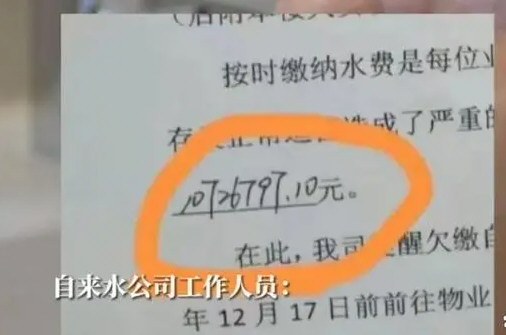 按时缴纳水费是每位业
成了严重的
10726797.10元。
在此，我司
醒欠缴自
自来水公司工作人员：
年12月17日前前往物业